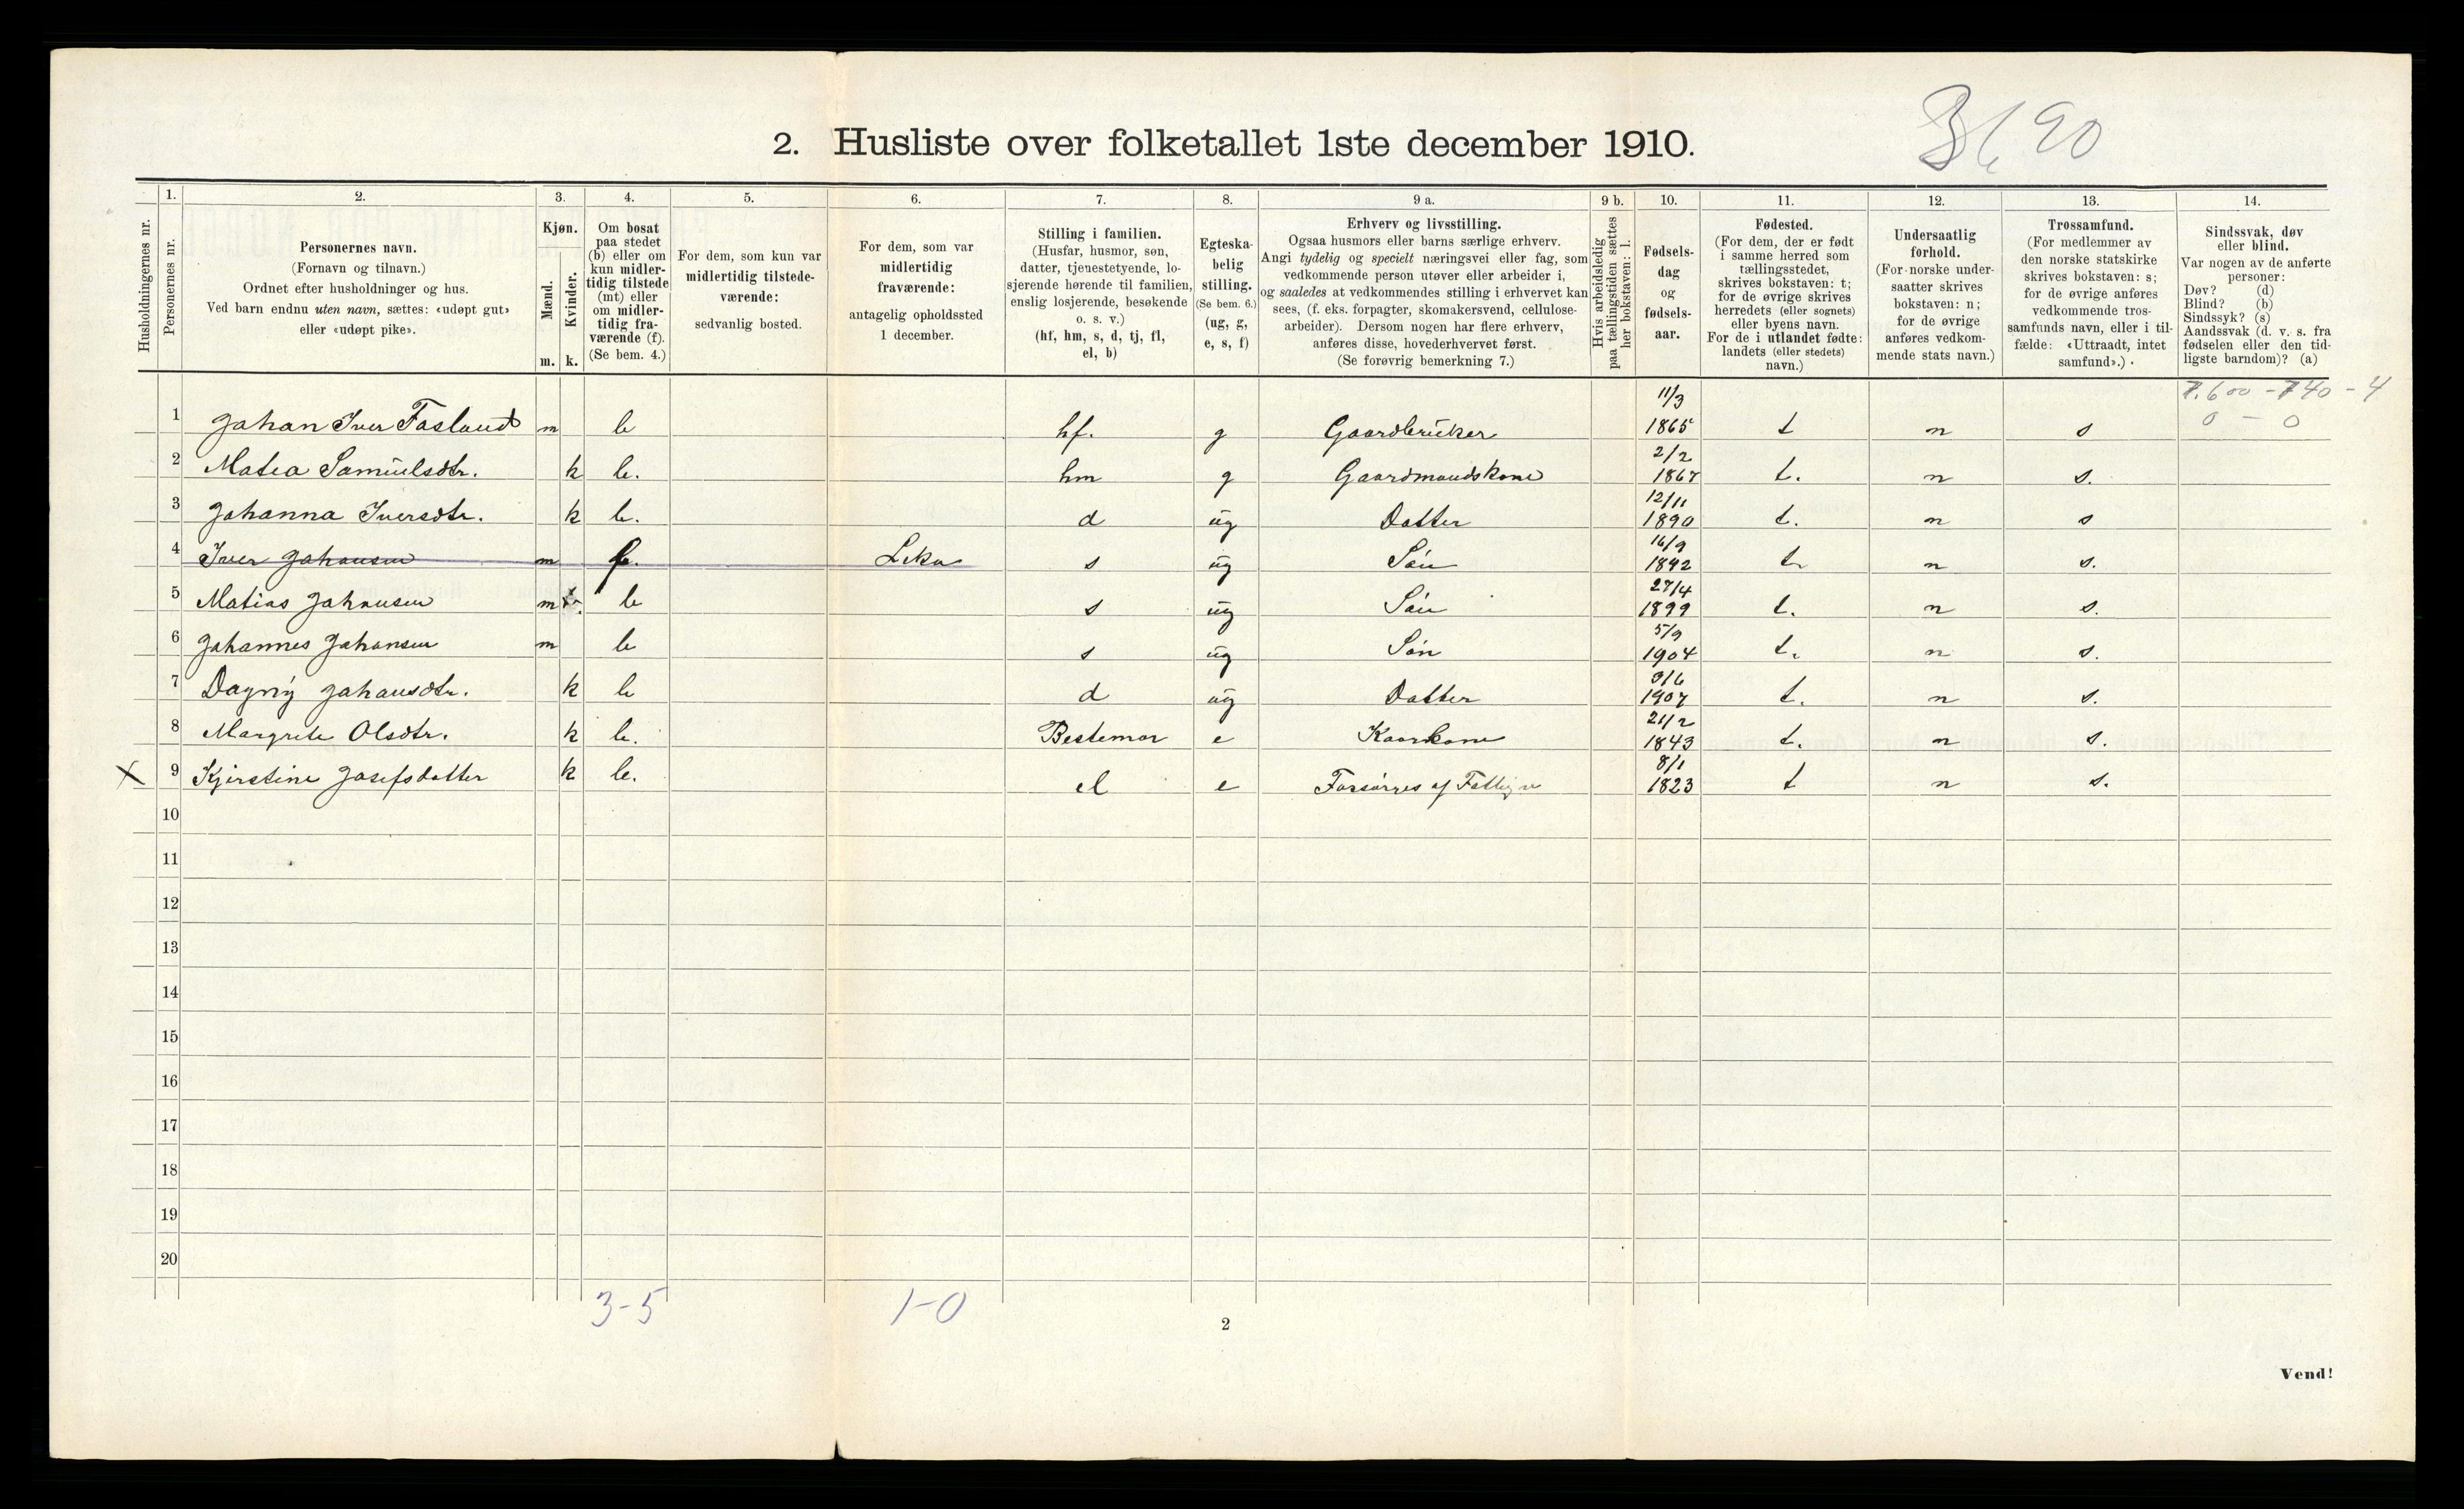 2. Husliste over folketallet 1ste december 1910.
90
Husholdningernes nr.
1. Personernes nr.
2. Personernes navn. (Fornavn og tilnavn.) Ordnet efter husholdninger og hus. Ved barn endnu uten navn, sættes: «udøpt gut» eller «udøpt pike».
3. Kjøn. Mænd. m. Kvinder. k.
4. Om bosat paa stedet (b) eller om kun midler-tidig tilstede (mt) eller om midler-tidig fra-værende (f). (Se bem. 4.)
5. For dem, som kun var midlertidig tilstede-værende: sedvanlig bosted.
6. For dem, som var midlertidig fraværende: antagelig opholdssted 1 december.
7. Stilling i familien. (Husfar, husmor, søn, datter, tjenestetyende, lo-sjerende hørende til familien, enslig losjerende, besøkende o. s. v.) (hf, hm, s, d, tj, fl, el, b)
8. Egteska-belig stilling. (Se bem. 6.) (ug, g, e, s, f)
9 a. Erhverv og livsstilling. Ogsaa husmors eller barns særlige erhverv. Angi tydelig og specielt næringsvei eller fag, som vedkommende person utøver eller arbeider i, og saaledes at vedkommendes stilling i erhvervet kan sees, (f. eks. forpagter, skomakersvend, cellulose-arbeider). Dersom nogen har flere erhverv, anføres disse, hovederhvervet først. (Se forøvrig bemerkning 7.)
9 b. Hvis arbeidsledig paa tællingstiden sættes her bokstaven: l.
10. Fødsels-dag og fødsels-aar.
11. Fødested. (For dem, der er født i samme herred som tællingsstedet, skrives bokstaven: t; for de øvrige skrives herredets (eller sognets) eller byens navn. For de i utlandet fødte: landets (eller stedets) navn.)
12. Undersaatlig forhold. (For norske under-saatter skrives bokstaven: n; for de øvrige anføres vedkom-mende stats navn.)
13. Trossamfund. (For medlemmer av den norske statskirke skrives bokstaven: s; for de øvrige anføres vedkommende tros-samfunds navn, eller i til-fælde: «Uttraadt, intet samfund».)
14. Sindssvak, døv eller blind. Var nogen av de anførte personer: Døv? (d) Blind? (b) Sindssyk? (s) Aandssvak (d. v. s. fra fødselen eller den tid-ligste barndom)? (a)
0 - 0
1 Johan Iver Fosland m b hf. g Gaardbruker 11/3 1865 t n s
2 Matea Samuelsdtr. k b. hm g Gaardmandskone 2/2 1867 t. n s.
3 Johanna Iversdtr. k b. d ug Datter 12/11 1890 t. n s
4 Iver Johansen m f. Leka s ug Søn 16/9 1892 t. n s.
5 Matias Johansen m b s ug Søn 27/4 1899 t. n s.
6 Johannes Johansen m b s ug Søn 5/9 1904 t. n s.
7 Dagny Johansdtr. k b d ug Datter 9/6 1907 t. n s.
8 Margrete Olsdtr. k b. Bestemor e Kaarkone 21/2 1843 t. n s.
X 9 Kjirstine Josefsdatter k b. el e Forsørges af Fattigv 8/1 1823 t n s.
10
11
12
13
14
15
16
17
18
19
20
3-5 1-0
2
Vend!